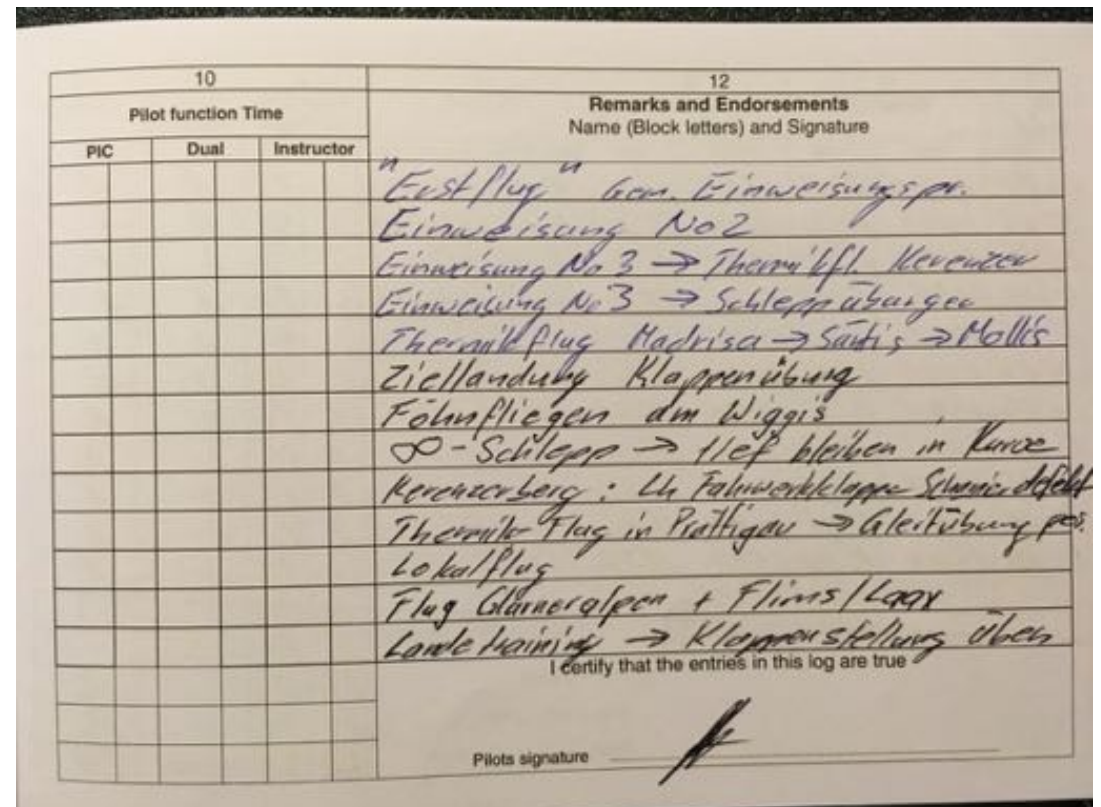 10
12
Pilot function Time
Remarks and Endorsements
Name (Block letters) and Signature
PIC Dual Instructor
"Erstflug" Gem. Einweisungspr.
Einweisung No2
Einweisung No 3 → Thermikfl. Kerenzer
Einweisung No 3 → Schleppübungen
Thermikflug Madrisa → Säntis → Mollis
Ziellandung Klappenübung
Föhnfliegen am Wiggis
∞ - Schlepp → tief bleiben in Kurve
Kerenzerberg : Lh Fahrwerkklappe Scharnier defekt
Thermik Flug in Prättigau → Gleitübung
Lokalflug
Flug Glarneralpen + Flims / Laax
Landetraining → Klappenstellung üben
I certify that the entries in this log are true
Pilots signature